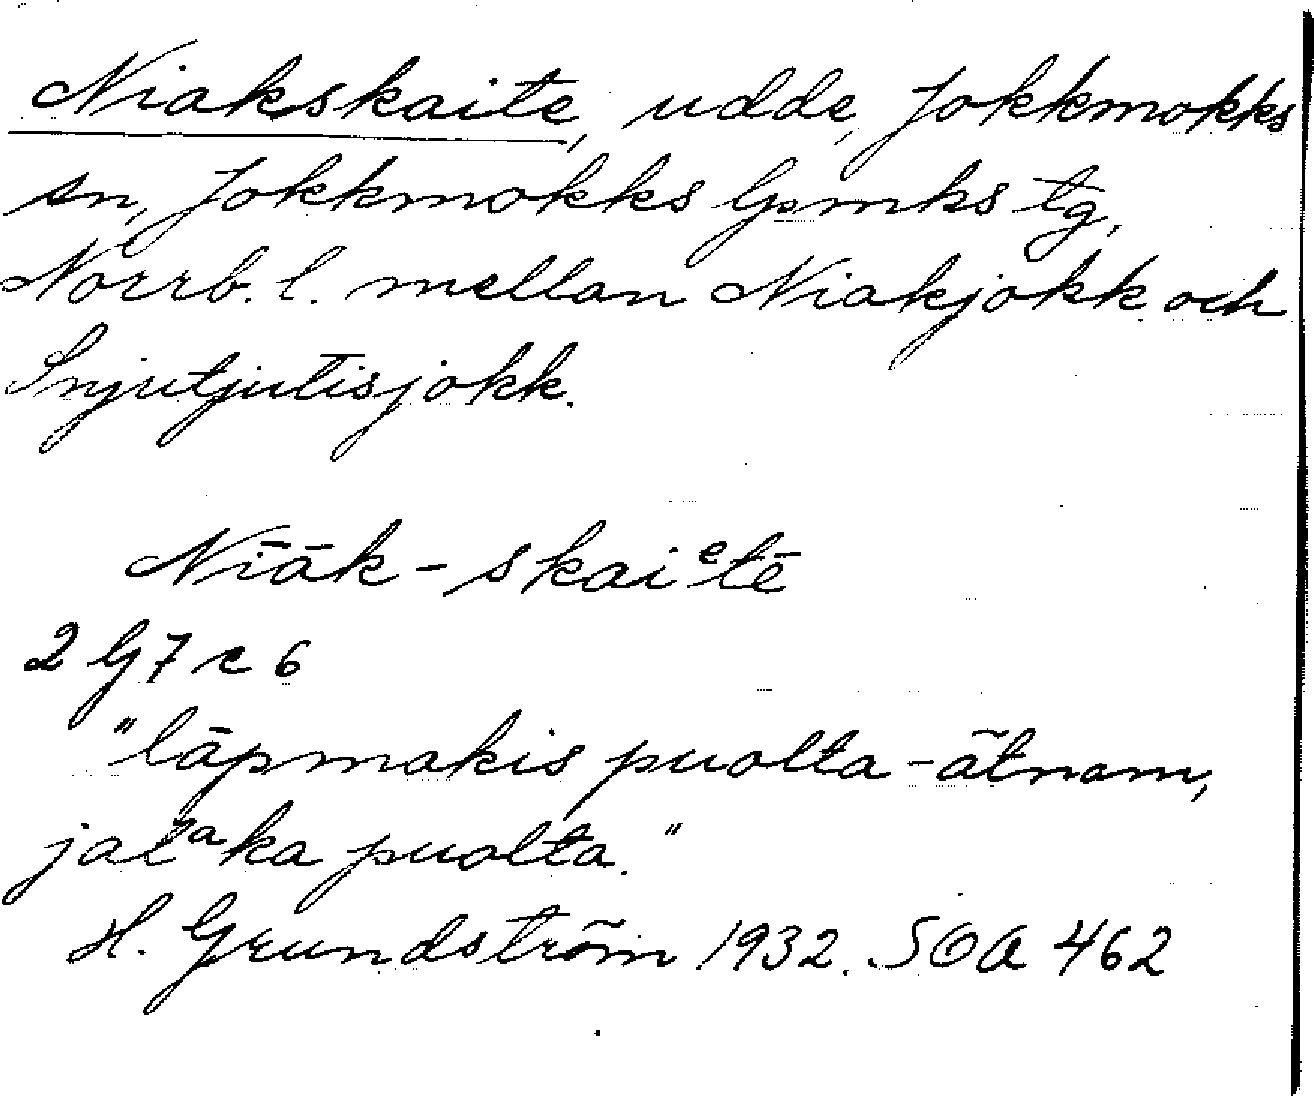 Niakskaite, udde, Jokkmokks
sn, Jokkmokks Gmks tg,
Norrb. l. mellan Niakjokk och
Snjutjutisjokk.
Nīāk-skaiᵉtē
2 G 7 c 6
"lāpmakis puolta-ātnam,
jalᵃka puolta."
H. Grundström 1932. SOA 462